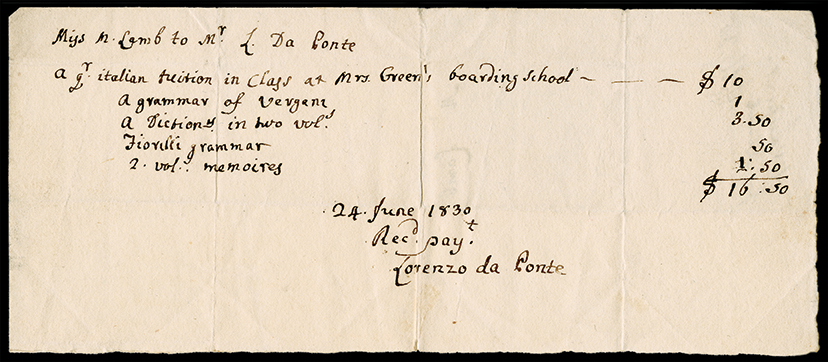 Miss M. Lamb to Mr. L. Da Ponte
A qr. italian tuition in Class at Mrs. Green's boarding school — — — $ 10
A grammar of Vergani 1
A Dictiony. in two vols. 3.50
Fiorilli grammar 50
2. vol.s memoires 1.50
$ 16.50
24. June 1830
Recd. payt.
Lorenzo da Ponte